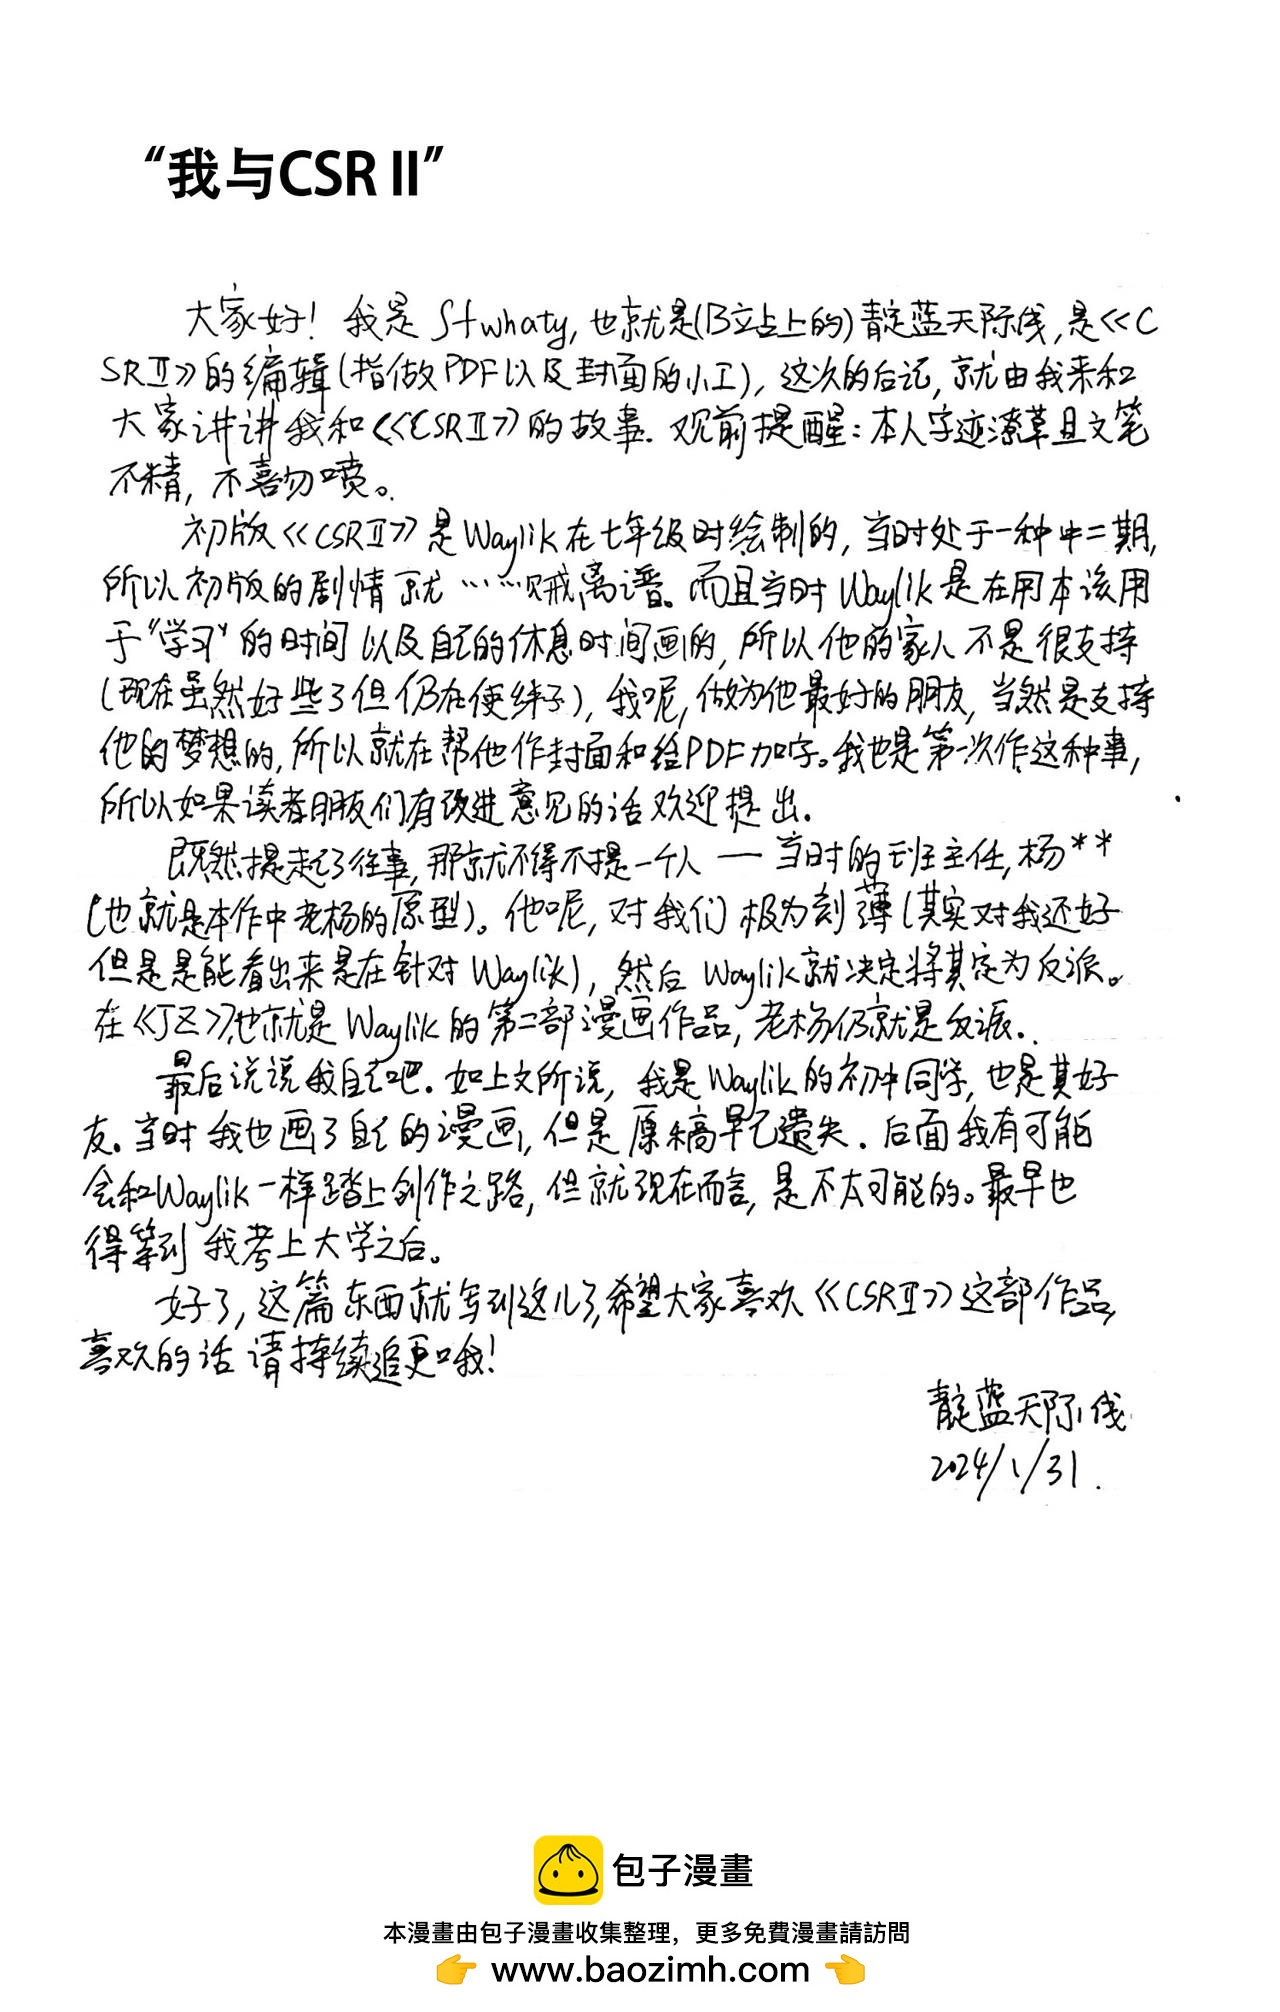 “我与CSR II”
大家好！我是Stwhaty，也就是(B站上的)靛蓝天际线，是《C
SRⅡ》的编辑(指做PDF以及封面的小工)，这次的后记，就由我来和
大家讲讲我和《CSRⅡ》的故事.观前提醒：本人字迹潦草且文笔
不精，不喜勿喷。
初版《CSRⅡ》是Waylik在七年级时绘制的，当时处于一种中二期，
所以初版的剧情就……贼离谱。而且当时Waylik是在用本该用
于“学习”的时间以及自己的休息时间画的，所以他的家人不是很支持
(现在虽然好些了但仍在使绊子)，我呢，做为他最好的朋友，当然是支持
他的梦想的，所以就在帮他作封面和给PDF加字。我也是第一次作这种事，
所以如果读者朋友们有改进意见的话欢迎提出.
既然提起了往事，那就不得不提一个人——当时的班主任，杨**
(也就是本作中老杨的原型)。他呢，对我们极为刻薄(其实对我还好
但是是能看出来是在针对Waylik)，然后Waylik就决定将其定为反派。
在《JZ》，也就是Waylik的第二部漫画作品，老杨仍就是反派.
最后说说我自己吧.如上文所说，我是Waylik的初中同学，也是其好
友。当时我也画了自己的漫画，但是原稿早已遗失.后面我有可能
会和Waylik一样踏上创作之路，但就现在而言，是不太可能的。最早也
得等到我考上大学之后。
好了，这篇东西就写到这儿了，希望大家喜欢《CSRⅡ》这部作品，
喜欢的话请持续追更哦！
靛蓝天际线
2024/1/31.
包子漫畫
本漫畫由包子漫畫收集整理，更多免費漫畫請訪問
👉 www.baozimh.com 👈